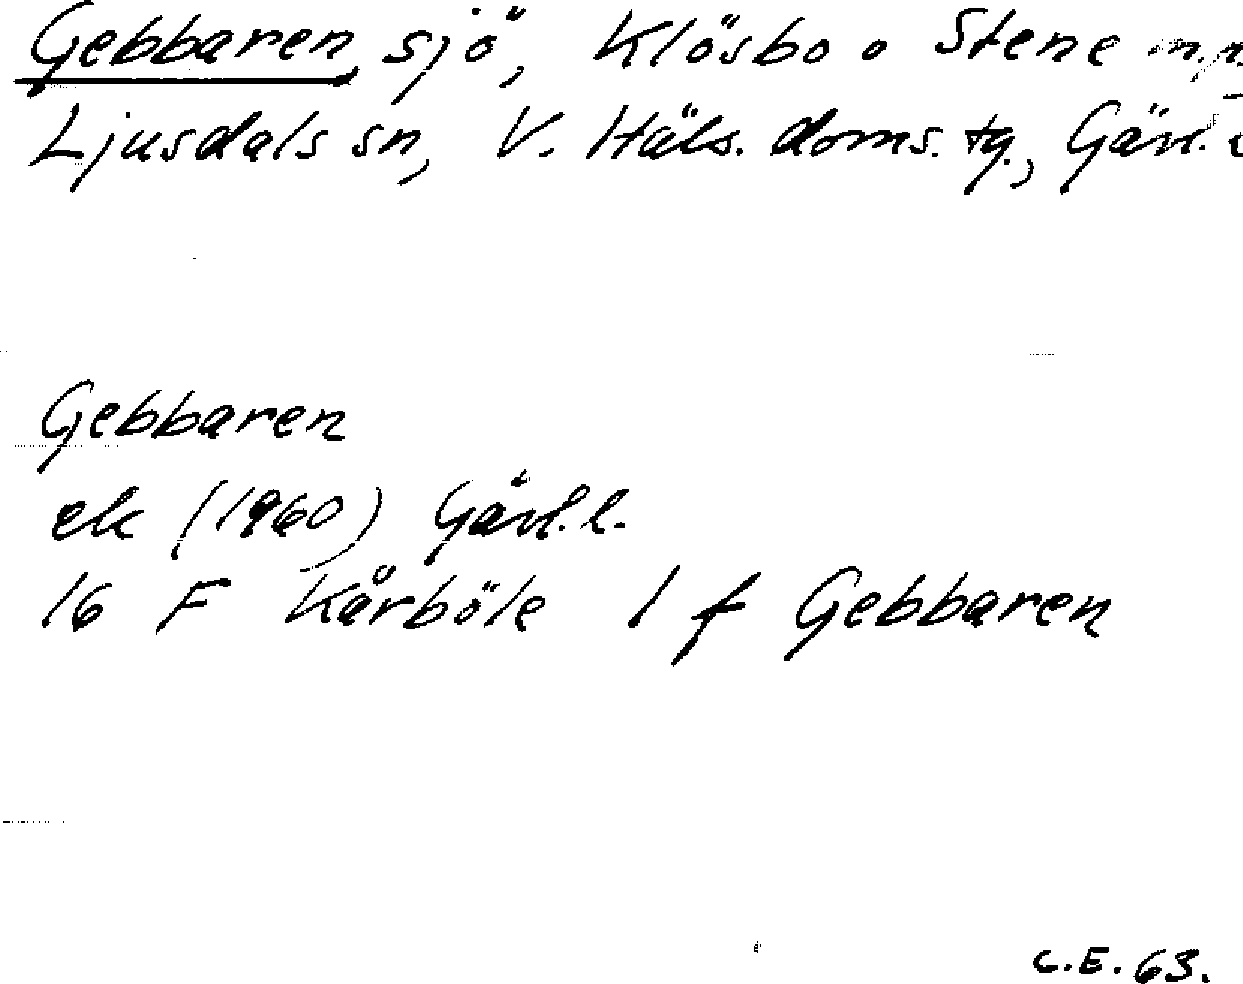 Gebbaren, sjö, Klösbo o Stene m.fl.
Ljusdals sn, V. Häls. doms. tg., Gävl. l
Gebbaren
ek (1960) Gävl. l.
16 F Kårböle 1 f Gebbaren
C.E. 63.